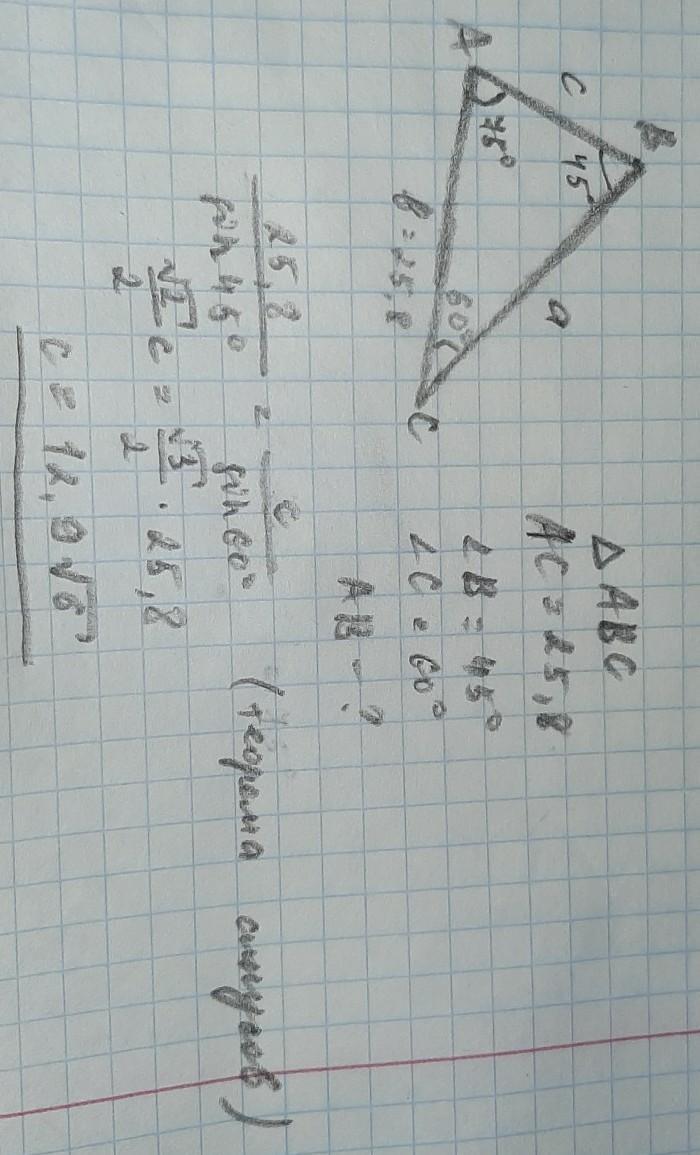 △ABC
AC = 25,8
∠B = 45°
∠C = 60°
AB - ?
B
c
45°
a
A
45°
60°
C
B = 25,8
25,8 / sin 45° = c / sin 60° (теорема синусов)
√2/2 c = √3/2 · 25,8
c = 12,9√6